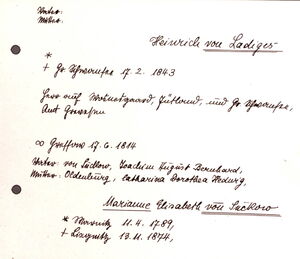 Vater:
Mutter:
Heinrich von Ladiges
*
+ Gr 17. 2. 1843
Herr auf Jütland, und Gr
Amt
∞ 17. 6. 1814
Vater: von Lückow, Joachim August Bernhard,
Mutter: Oldenburg, Catharina Dorothea Hedwig,
Marianne Elisabeth von Lückow
* 11. 4. 1789,
+ 13. 11. 1874,